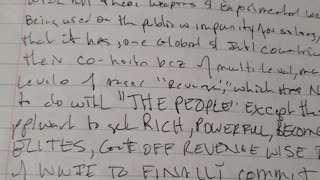 these weapons of Experimental we
Being used on the public w impunity for so long,
that it has, one Global & Intl Countries
their co-horts bcz of multi-level, m
levels of "Revenge", which has N
to do with "THE PEOPLE" Except tha
ppl want to get RICH, POWERFUL, BECOME
ELITES, OFF REVENGE WISE
I to FINALLY commit